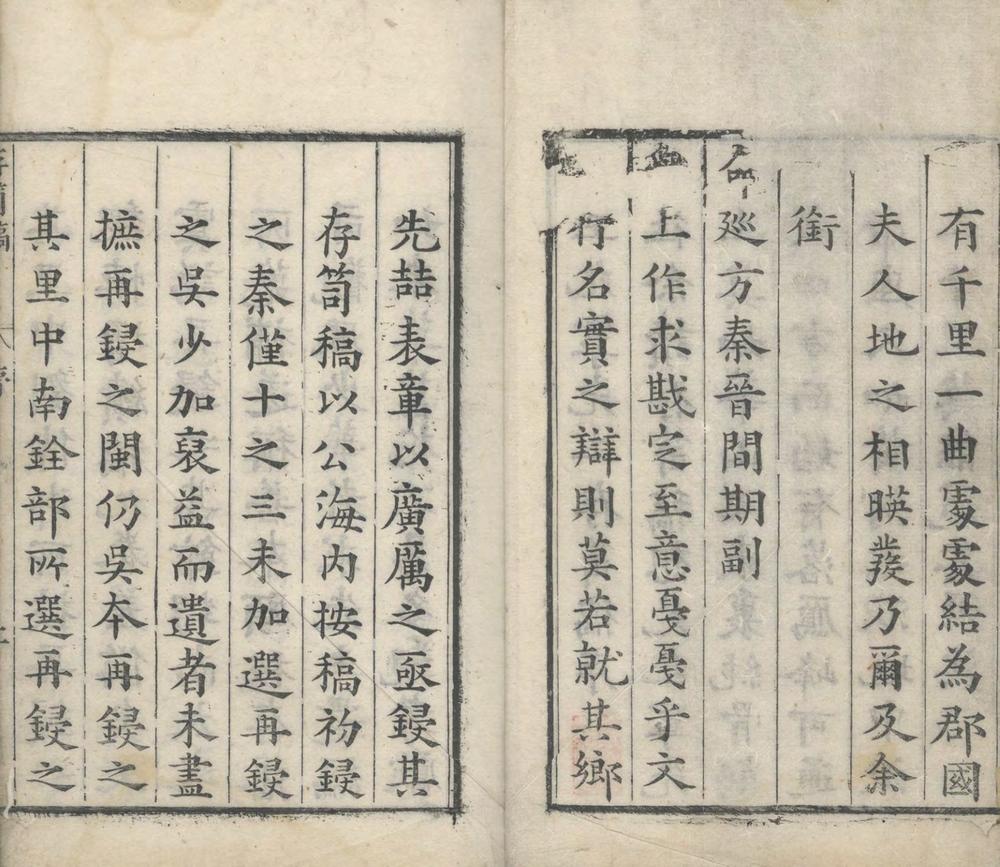 有千里一曲䖏䖏結為郡國
夫人地之相暎發乃爾及余
銜
命
廵方秦晉間期副
上作求戡定至意戞戞乎文
行名實之辯則莫若就其鄉
先喆表章以廣厲之亟鋟其
存笥稿以公海内按稿初鋟
之秦僅十之三未加選再鋟
之吳少加裒益而遺者未盡
摭再鋟之閩仍吳本再鋟之
其里中南銓部所選再鋟之
存笥稿 序